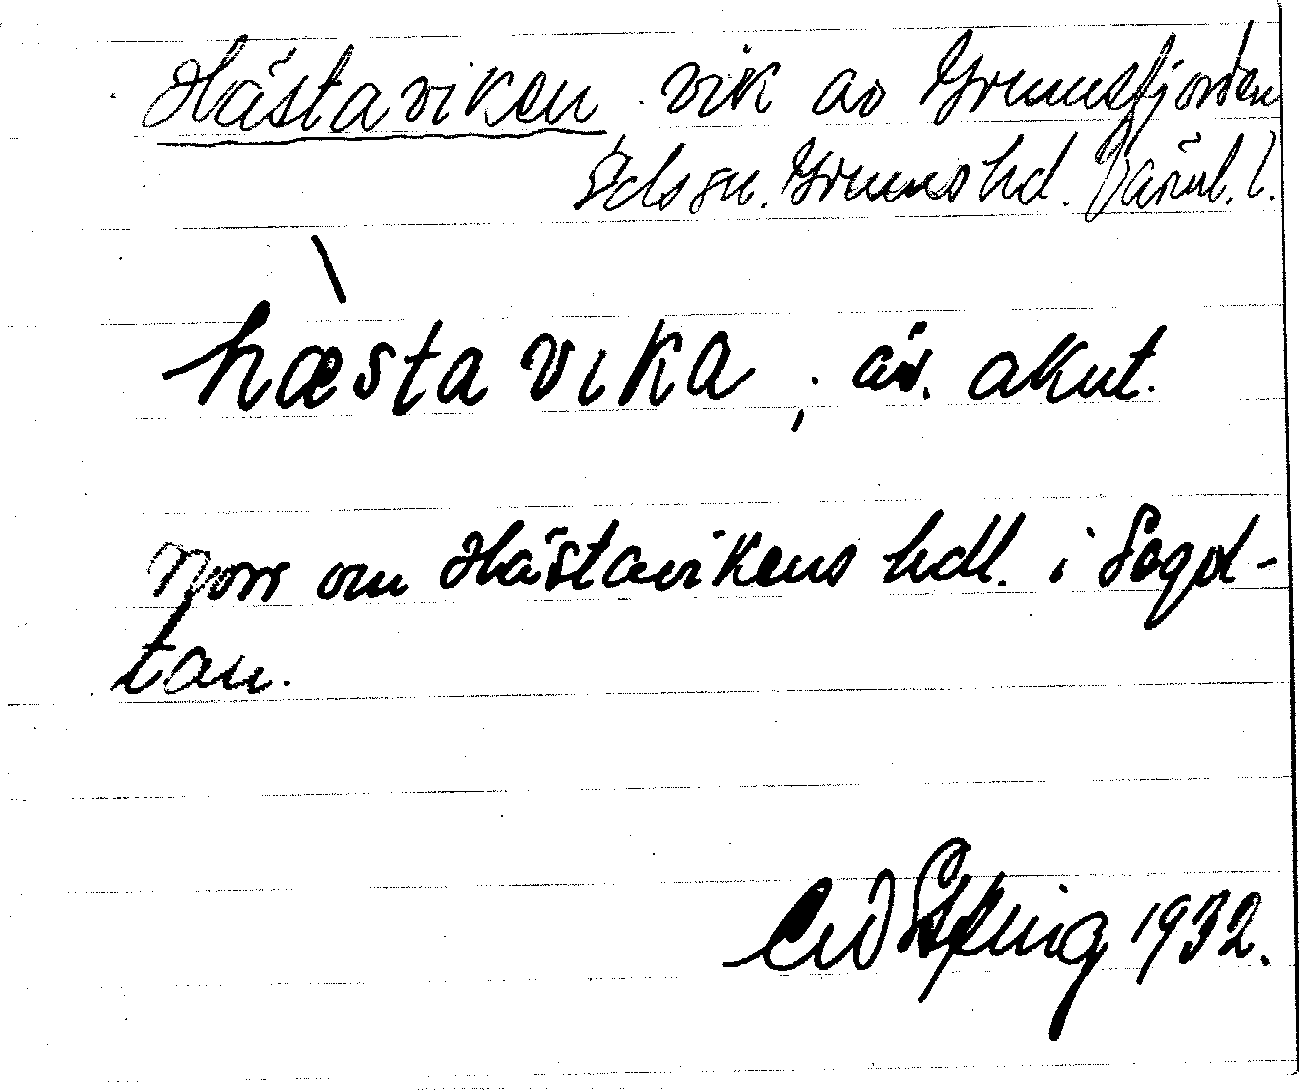 Hästaviken vik av Grumsfjorden
Eds sn. Grums hd. Värml. l.
hæ̀stavika, äv. akut.
Norr om Hästavikens hdl. i Segol-
tan.
1932.